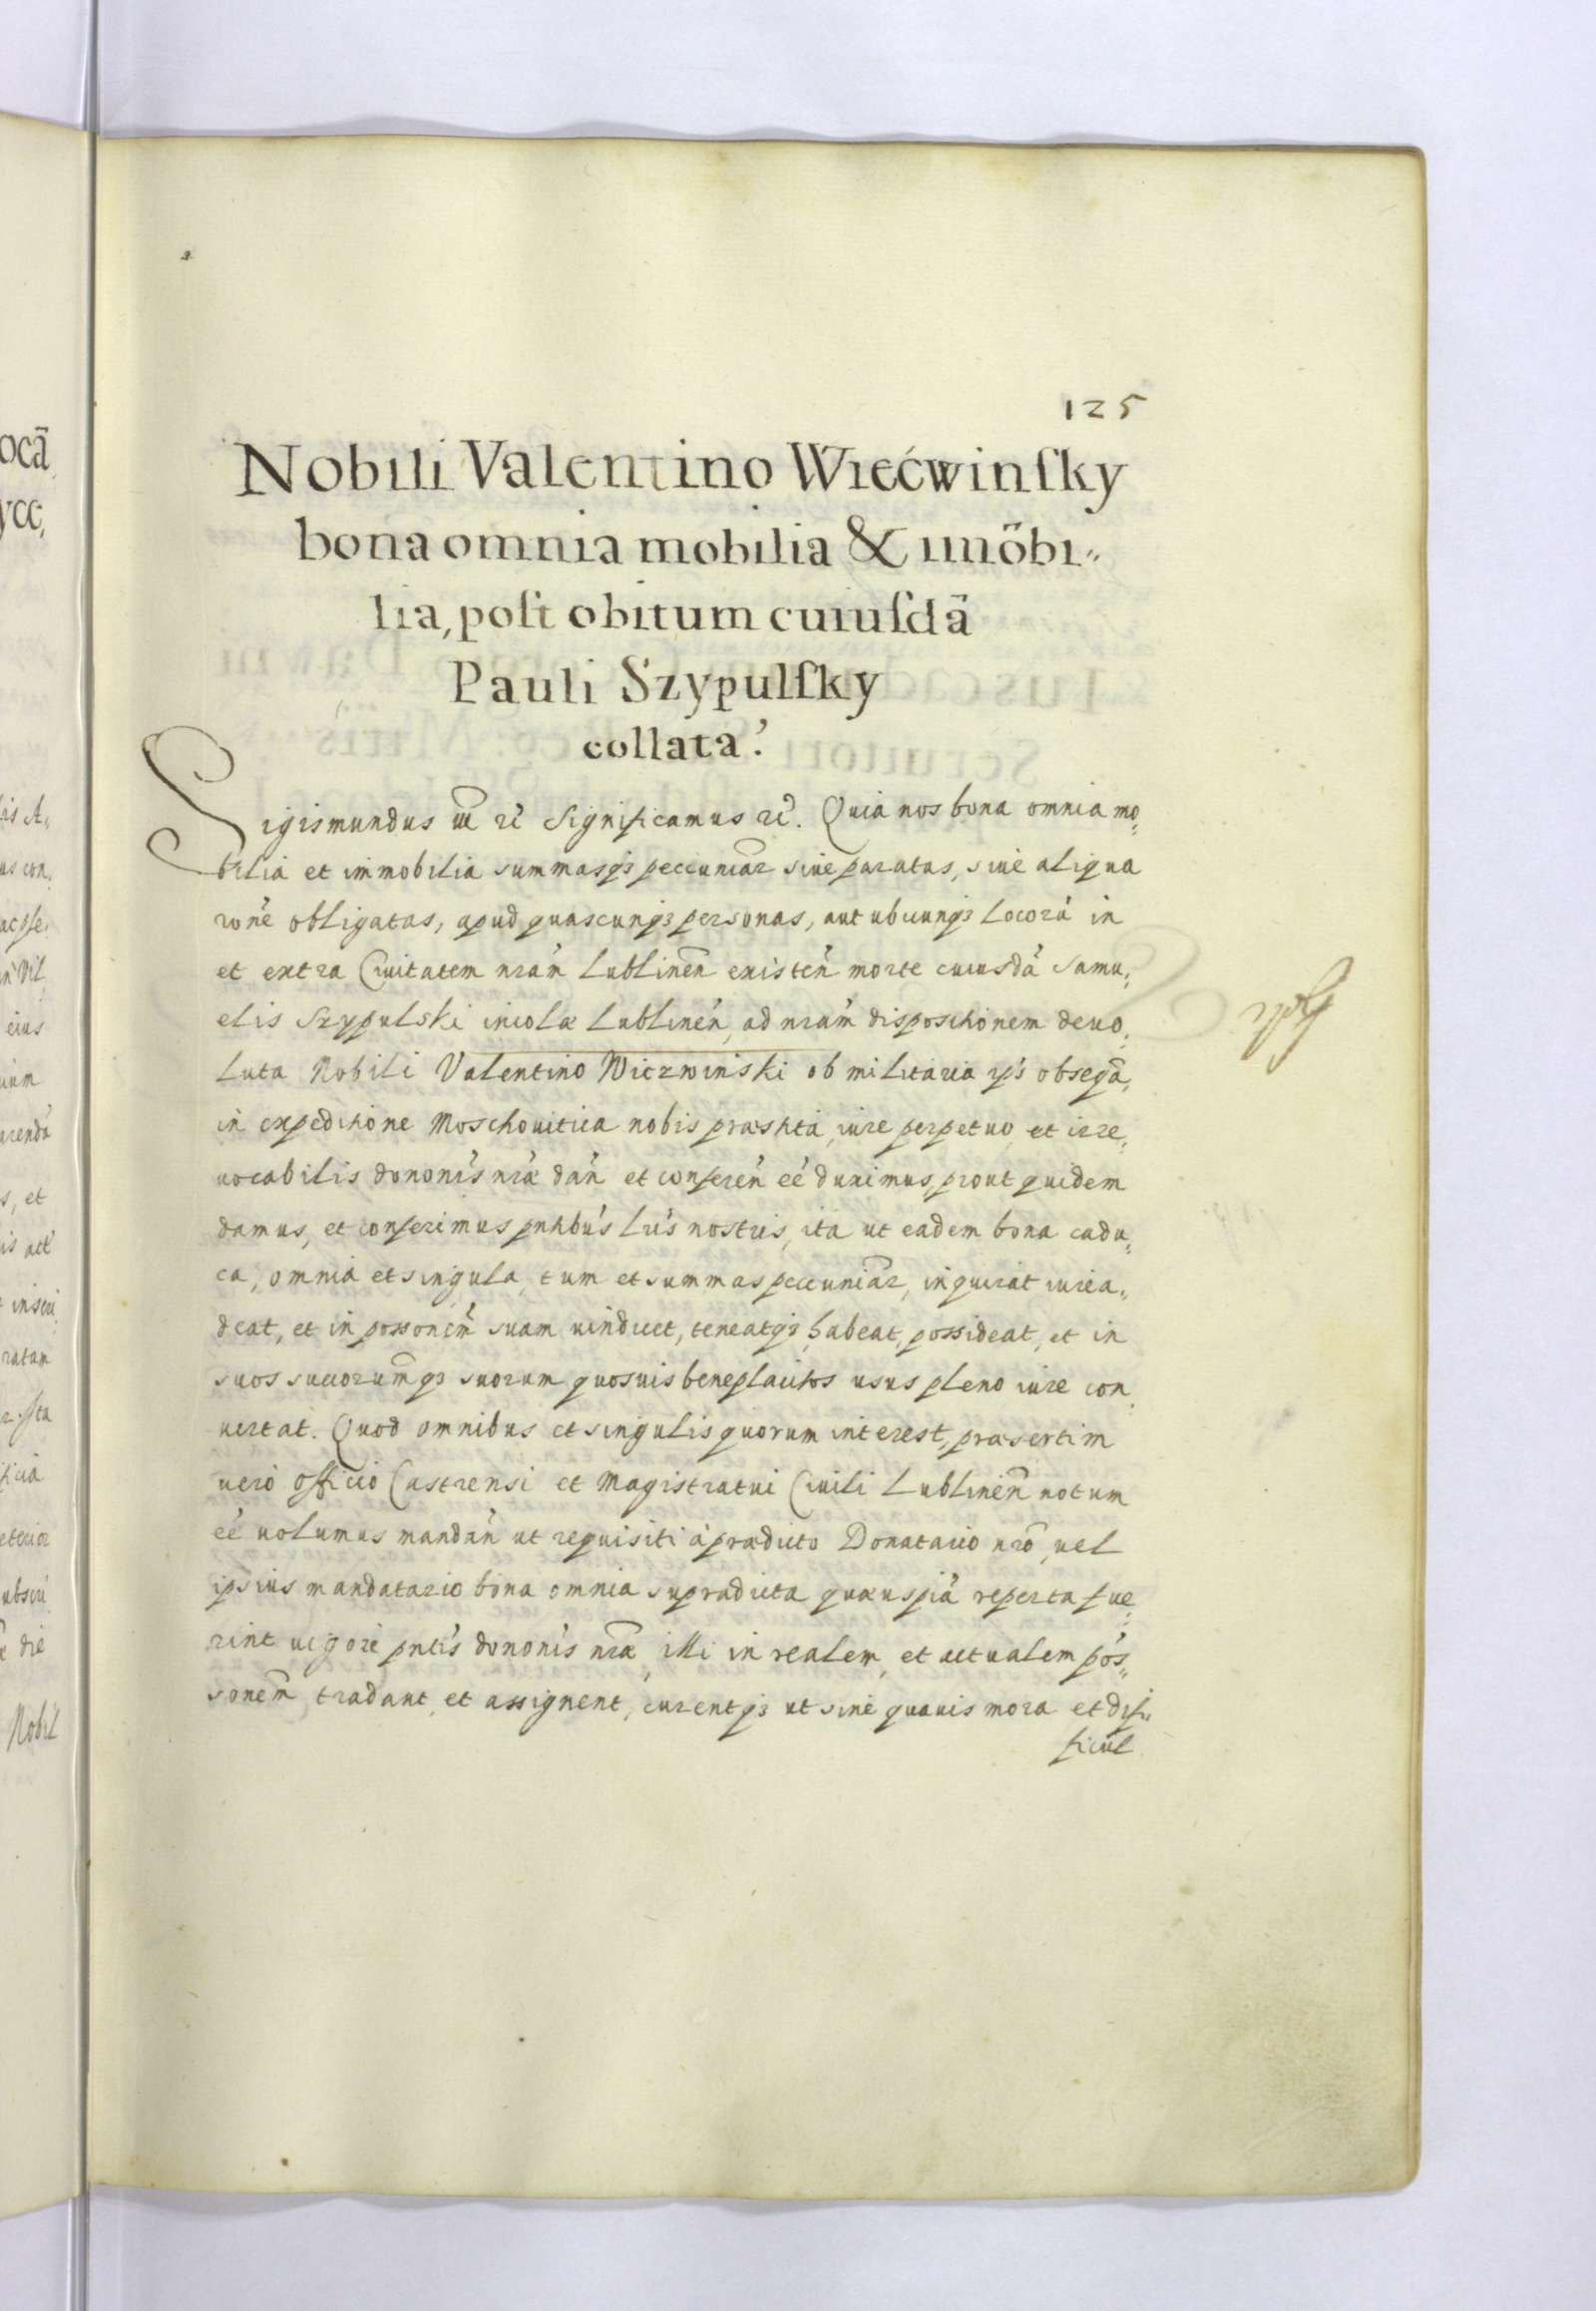 125
Nobili Valentino Wiećwinſky
bona omnia mobilia & im̃obi„
lia, poſt obitum cuiuſdã
Pauli Szypulſky
collata.
Sigismundus III rc̃ Significamus rc̃. Quia nos bona omnia mo„
bilia et immobilia summasq3 peccuniar̃ siue paratas, siue aliqua
ror̃ne obligatas, apud quascunq3 personas, aut ubicunq3 locorũ in
et extra Ciuitatem nram̃ Lublineñ existeñ morte cuiusdã Samu„
elis Szypulski incolæ Lublineñ, ad nram̃ dispositionem deuo„
luta Nobili Valentino Wiczwinski ob militaria ips̃ obseqã,
in expeditione Moschouitica nobis præstita, iure perpetuo et irre„
uocabilis dononis̃ nræ̃ dañ et confereñ eẽ duximus, prout quidem
damus, et conferimus pntibus̃ lris̃ nostris, ita ut eadem bona cadu„
ca, omnia et singula, tum et summas peccuniar̃, inquirat iure a„
deat, et in possonem̃ suam uindicet, teneatq3 habeat, possideat, et in
suos succorumq̃3 suorum quosuis beneplacitos usus pleno iure con„
uertat. Quod omnibus et singulis quorum interest, præsertim
uero officio Castrensi et Magistratui Ciuili Lublineñ notum
eẽ uolumus mandañ ut requisiti à prædicto Donatario nrõ, uel
ipsius mandatario bona omnia supradicta quæuspiã reperta fue„
rint uigore pntis̃ dononis̃ nræ̃, illi in realem, et actualem pos̃„
sonem̃ tradant, et assignent, curentq3 ut sine quauis mora et dif„
ficul